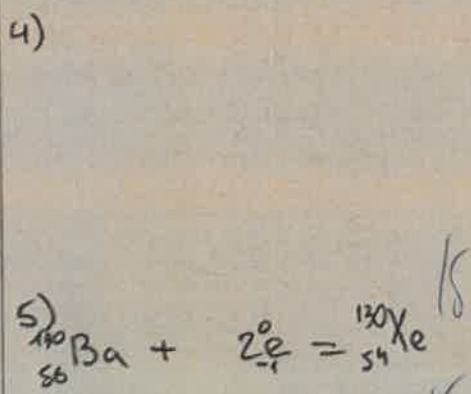 4)
5)
¹³⁰₅₆Ba + 2⁰₋₁e = ¹³⁰₅₄Xe